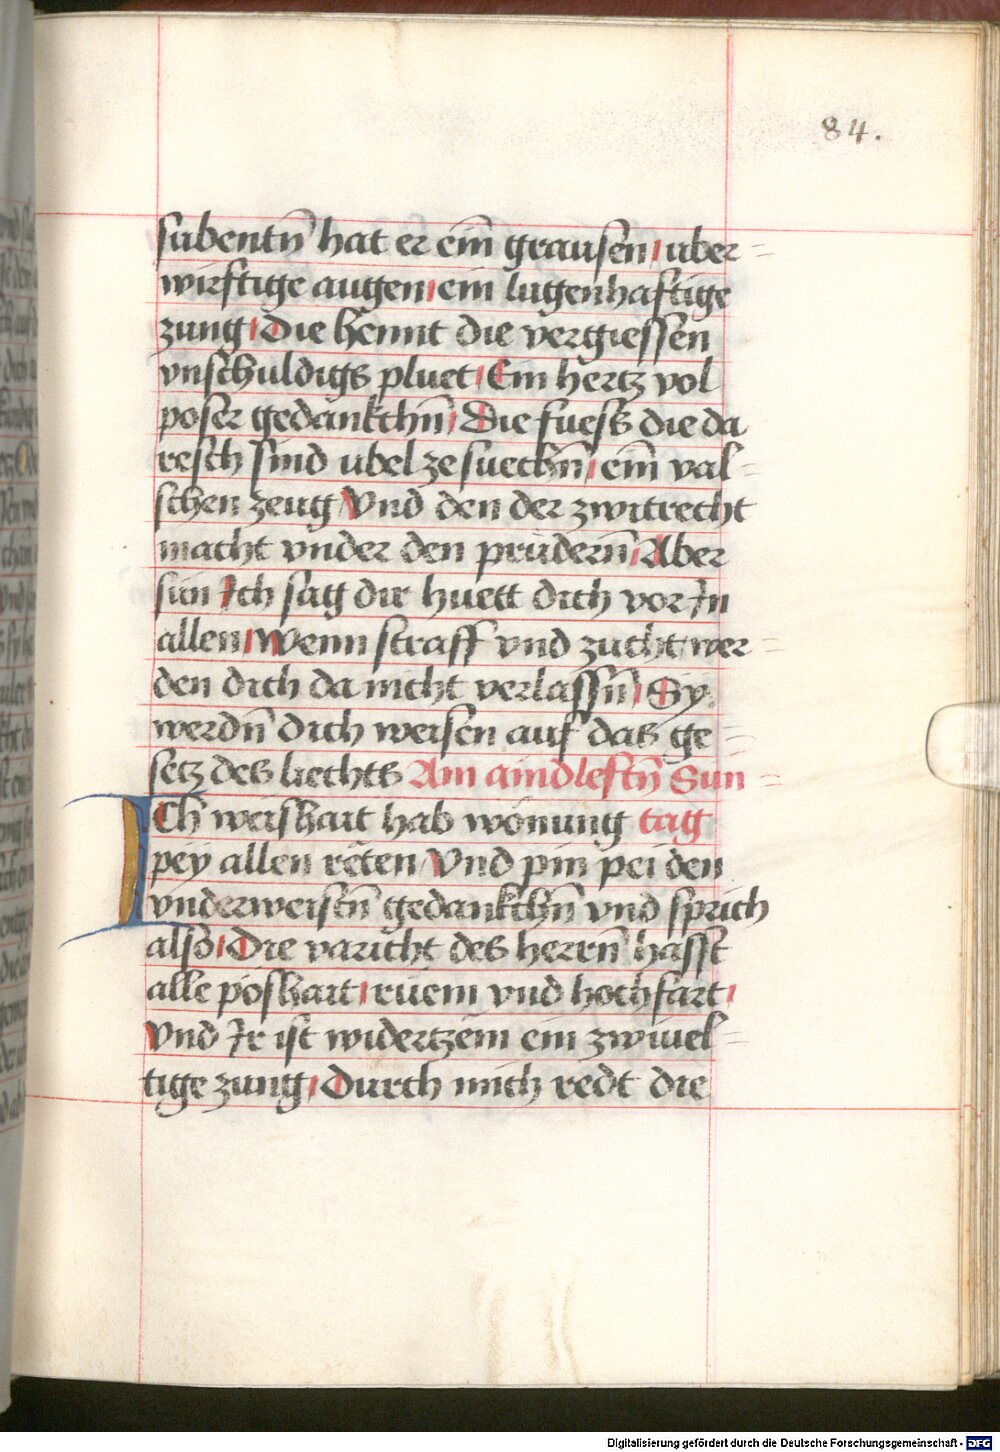 84.
subentn̄ hat er ein̄ grausen, uber=
wirftige augen, ein lugenhaftige
zung, Die hennt die vergiessen
vnschuldigs pluet, Ein hertz vol
poser gedankchn̄, Die fuess die da
resch sind ubel ze suechn̄, ein̄ val=
schen zeug, Vnd den der zwitrecht
macht vnder den prüdern̄, Aber
sun Ich sag dir huett dich vor In
allen, Wenn straff vnd zucht wer=
den dich da nicht verlassn̄, Sy
werdn̄ dich weisen auf das ge=
setz des liechts Am aindlestn̄ Sun=
Ich weishait hab wonung tag
pey allen reten, Vnd pin pei den
vnderweisen̄ gedankchn̄ vnd sprich
also, Die varicht des herrn̄ hasst
alle poshait, rüem vnd hochfart,
Vnd Ir ist widertzem ein zwiuel=
tige zung, Durch mich redt die
Digitalisierung gefördert durch die Deutsche Forschungsgemeinschaft - DFG